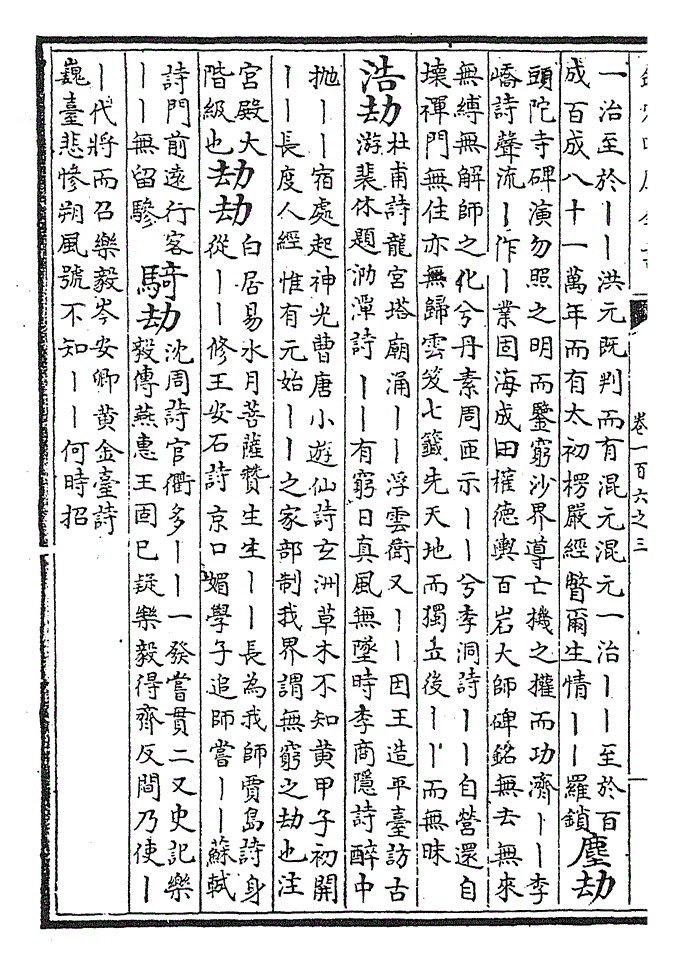 卷一百六之三
一治至於丨丨洪元既判而有混元混元一治丨丨至於百
成百成八十一萬年而有太初楞嚴經瞥爾生情丨丨羅鎖
塵劫
頭陀寺碑演勿照之明而鑒窮沙界導亡機之權而功濟丨丨李
嶠詩聲流丨作丨業因海成田權德輿百岩大師碑銘無去無來
無縛無解師之化兮丹素周匝示丨丨兮李洞詩丨丨自營還自
壞禪門無住亦無歸雲笈七籤先天地而獨立後丨丨而無昧
浩劫
杜甫詩龍宮塔廟涌丨丨浮雲衛又丨丨因王造平臺訪古
游裴休題泐潭詩丨丨有窮日真風無墜時李商隱詩醉中
拋丨丨宿處起神光曹唐小遊仙詩玄洲草木不知黄甲子初開
丨丨長度人經惟有元始丨丨之家部制我界謂無窮之劫也注
宮殿大
階級也
劫劫
白居易水月菩薩贊生生丨丨長為我師賈島詩身
從丨丨修王安石詩京口媚學子追師嘗丨丨蘇軾
詩門前遠行客
丨丨無留驂
騎劫
沈周詩官衢多丨丨一發嘗貫二又史記樂
毅傳燕惠王固已疑樂毅得齊反間乃使丨
丨代將而召樂毅岑安卿黄金臺詩
巍臺悲慘朔風號不知丨丨何時招